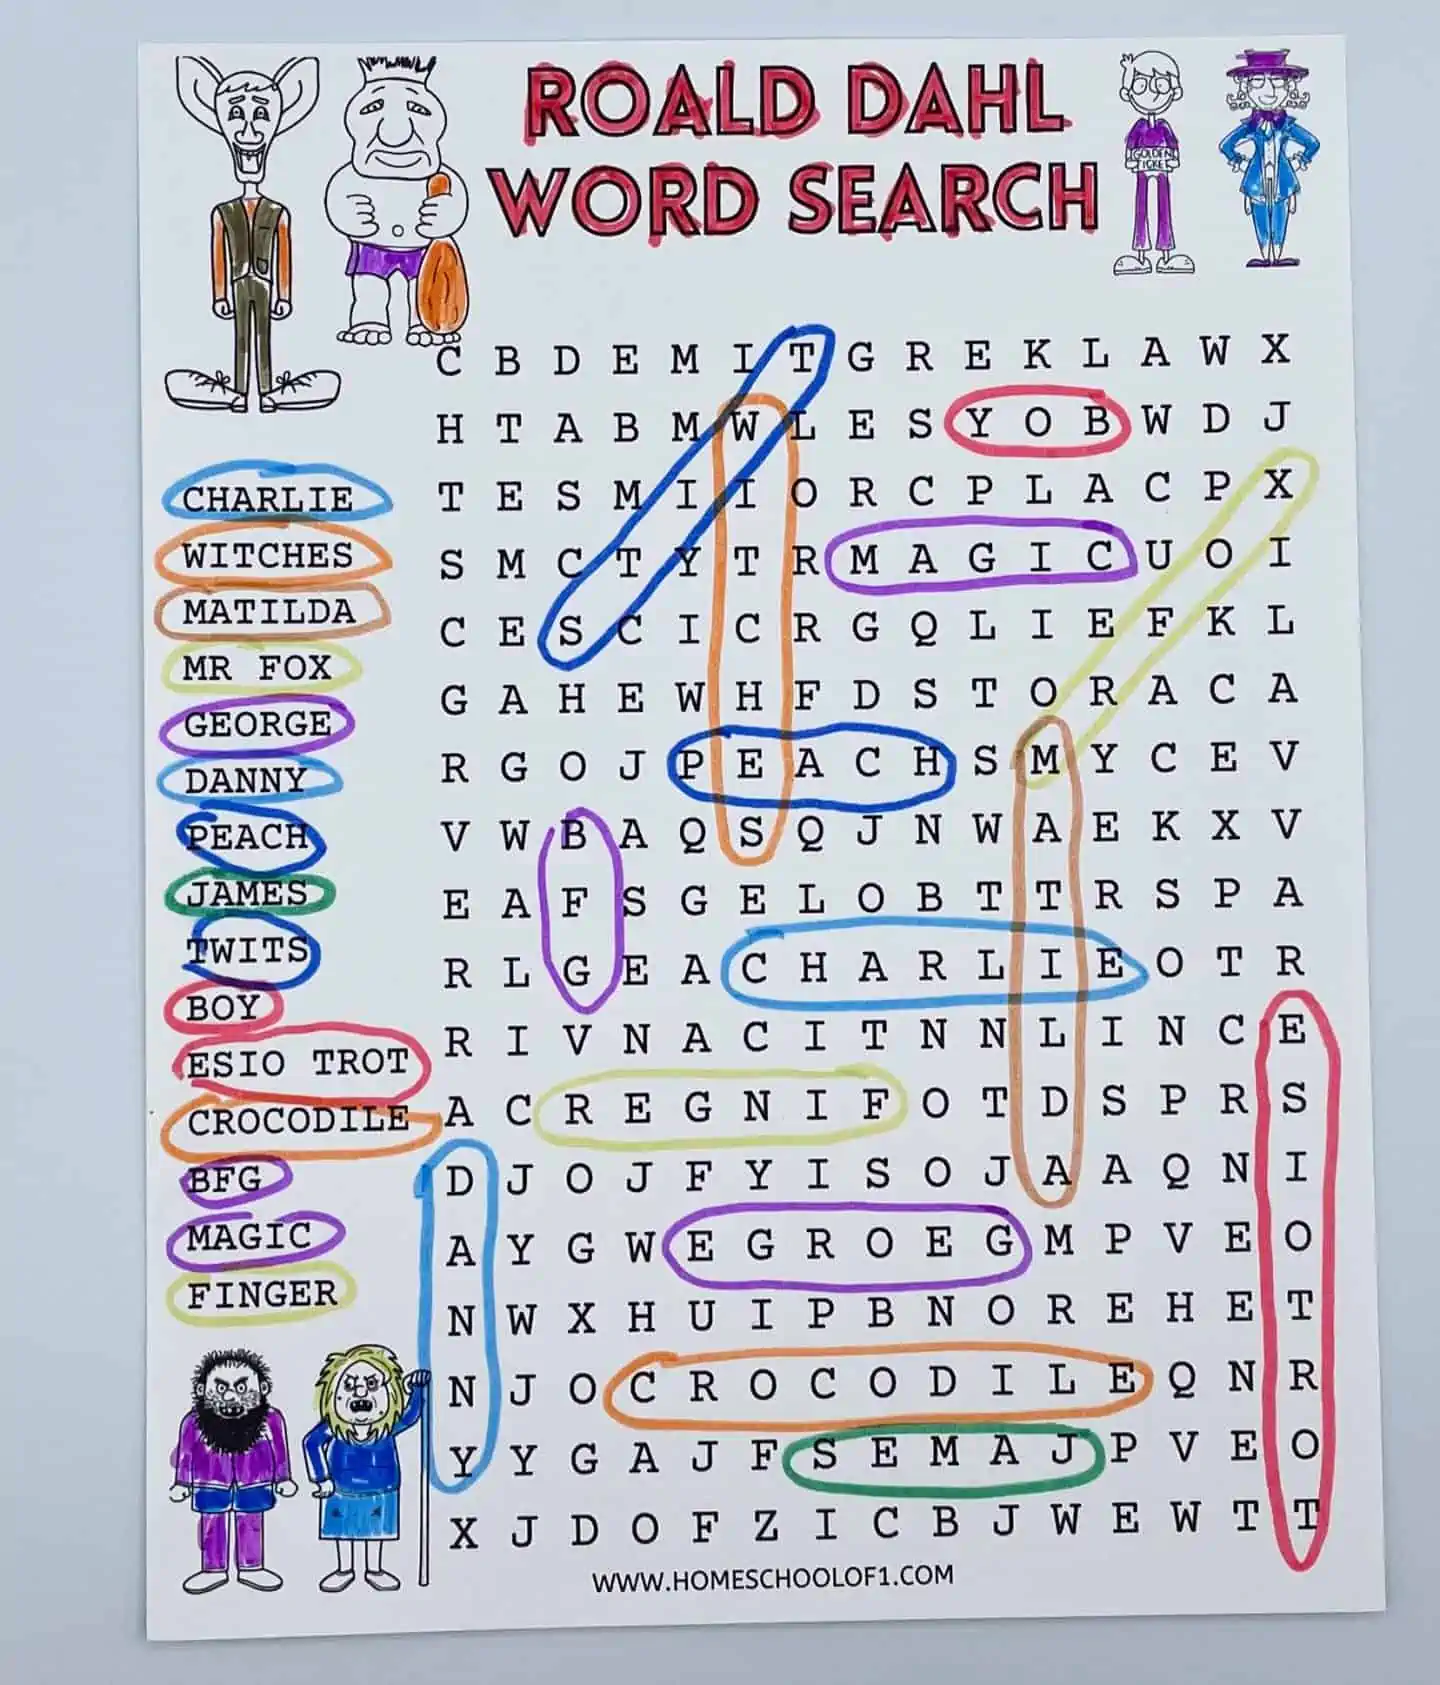 ROALD DAHL
WORD SEARCH
GOLDEN
TICKET
C B D E M I T G R E K L A W X
H T A B M W L E S Y O B W D J
T E S M I I O R C P L A C P X
S M C T Y T R M A G I C U O I
C E S C I C R G Q L I E F K L
G A H E W H F D S T O R A C A
R G O J P E A C H S M Y C E V
V W B A Q S Q J N W A E K X V
E A F S G E L O B T T R S P A
R L G E A C H A R L I E O T R
R I V N A C I T N N L I N C E
A C R E G N I F O T D S P R S
D J O J F Y I S O J A A Q N I
A Y G W E G R O E G M P V E O
N W X H U I P B N O R E H E T
N J O C R O C O D I L E Q N R
Y Y G A J F S E M A J P V E O
X J D O F Z I C B J W E W T T
CHARLIE
WITCHES
MATILDA
MR FOX
GEORGE
DANNY
PEACH
JAMES
TWITS
BOY
ESIO TROT
CROCODILE
BFG
MAGIC
FINGER
WWW.HOMESCHOOLOF1.COM